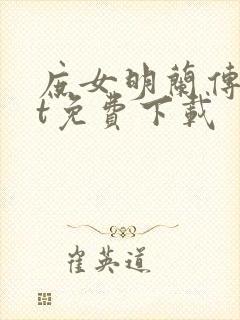 庶女明蘭傳
t免費下載
崔英道